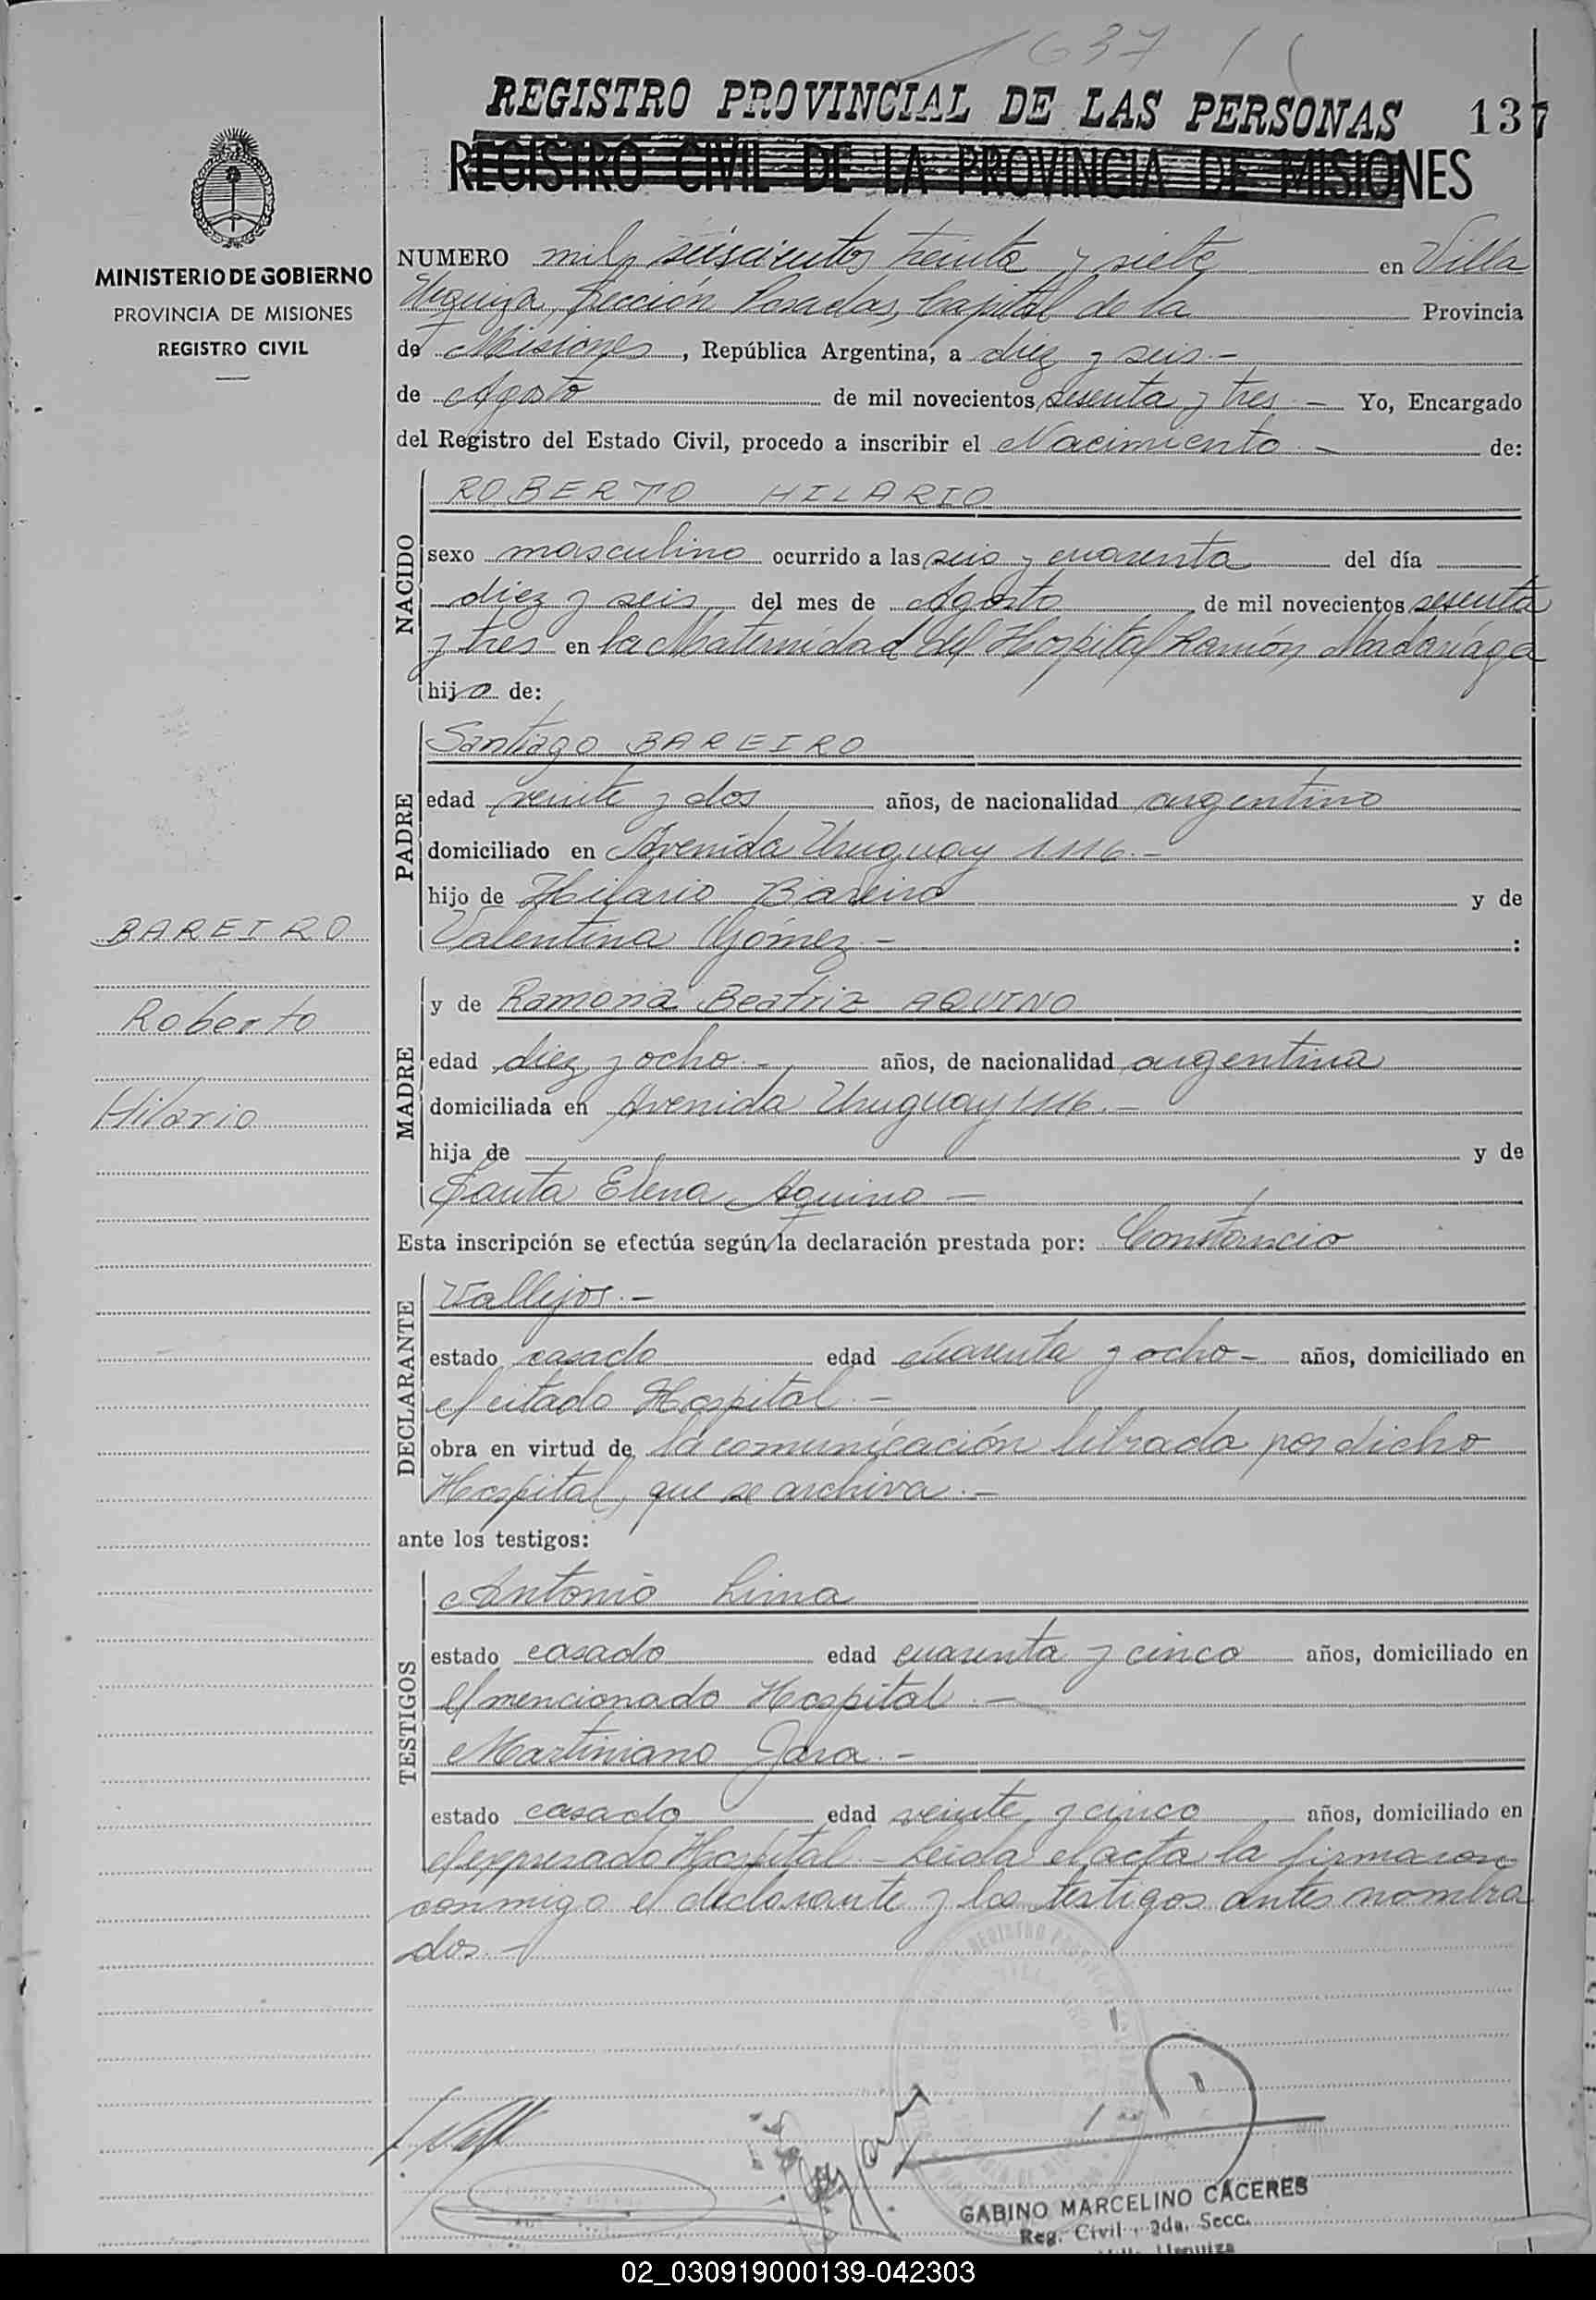 1637
REGISTRO PROVINCIAL DE LAS PERSONAS 137
REGISTRO CIVIL DE LA PROVINCIA DE MISIONES
MINISTERIO DE GOBIERNO
PROVINCIA DE MISIONES
REGISTRO CIVIL
NUMERO mil seiscientos treinta y siete en Villa
Urquiza, Sección Posadas, Capital de la Provincia
de Misiones, República Argentina, a diez y seis.-
de Agosto de mil novecientos sesenta y tres.- Yo, Encargado
del Registro del Estado Civil, procedo a inscribir el Nacimiento.- de:
NACIDO
ROBERTO HILARIO
sexo masculino ocurrido a las seis y cuarenta del día
diez y seis del mes de Agosto de mil novecientos sesenta
y tres en la Maternidad del Hospital Ramón Madariaga
hijo de:
PADRE
Santiago BAREIRO
edad veinte y dos años, de nacionalidad argentino
domiciliado en Avenida Uruguay 1116.-
hijo de Hilario Bareiro y de
Valentina Gómez.- :
BAREIRO
Roberto
Hilario
MADRE
y de Ramona Beatriz AQUINO
edad diez y ocho.- años, de nacionalidad argentina
domiciliada en Avenida Uruguay 1116.-
hija de y de
Santa Elena Aquino.-
Esta inscripción se efectúa según la declaración prestada por: Constancio
DECLARANTE
Vallejos.-
estado casado edad cuarenta y ocho- años, domiciliado en
el citado Hospital.-
obra en virtud de la comunicación librada por dicho
Hospital, que se archiva.-
ante los testigos:
TESTIGOS
Antonio Lima
estado casado edad cuarenta y cinco años, domiciliado en
el mencionado Hospital.-
Martiniano Jara.-
estado casado edad veinte y cinco años, domiciliado en
el expresado Hospital.- Leida el acta la firmaron
conmigo el declarante y los testigos antes nombra
dos.-
GABINO MARCELINO CÁCERES
Reg. Civil, 2da. Secc.
Villa Urquiza
02_030919000139-042303